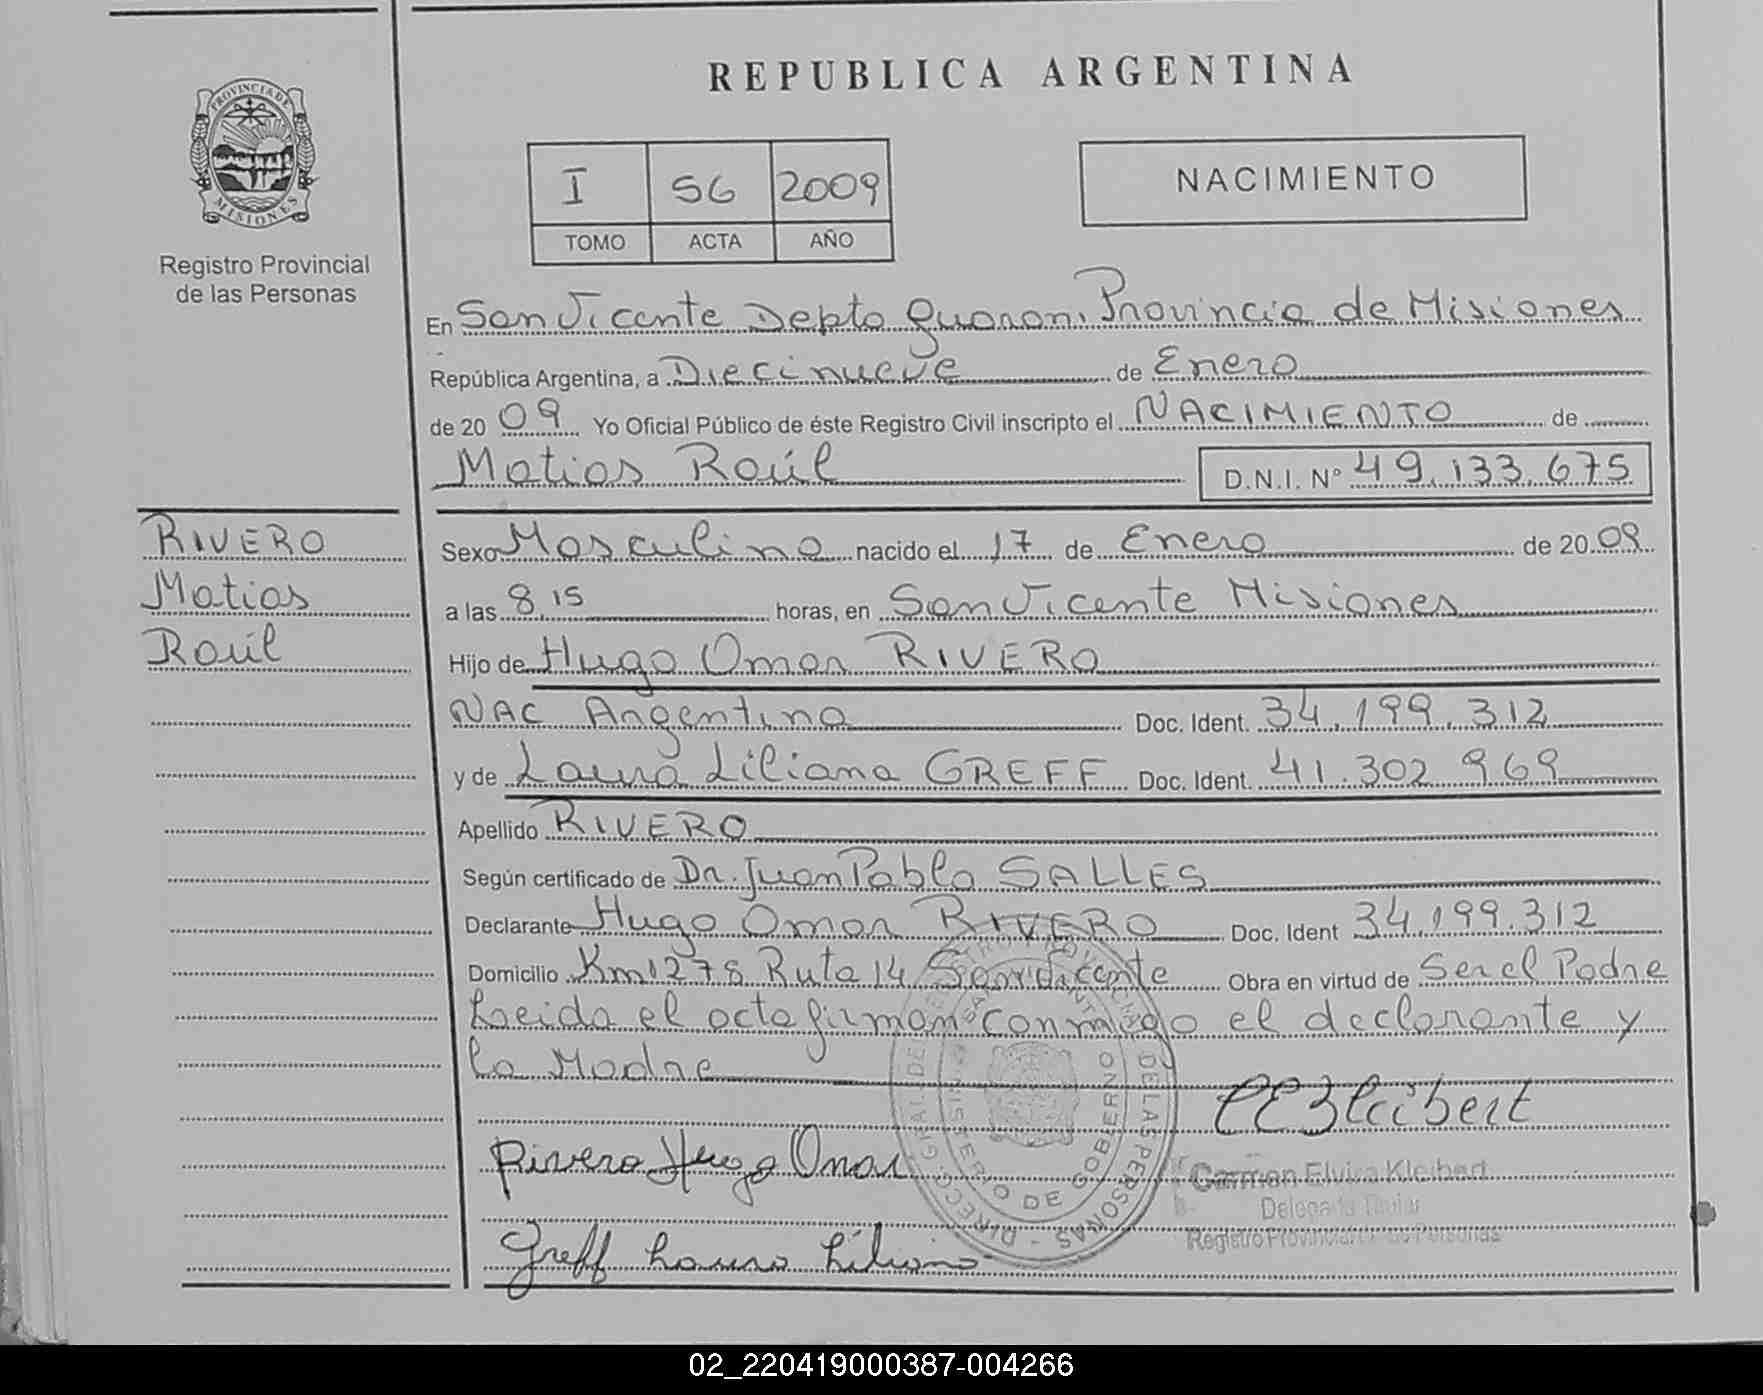 REPUBLICA ARGENTINA
PROVINCIA DE
MISIONES
Registro Provincial
de las Personas
I 56 2009
TOMO ACTA AÑO
NACIMIENTO
En San Vicente Depto Guarani Provincia de Misiones
República Argentina, a Diecinueve de Enero
de 2009 Yo Oficial Público de éste Registro Civil inscripto el NACIMIENTO de
Matias Raúl D.N.I. Nº 49.133.675
RIVERO
Matias
Raúl
Sexo Masculino nacido el 17 de Enero de 2009
a las 8,15 horas, en San Vicente Misiones
Hijo de Hugo Omar RIVERO
NAC Argentina Doc. Ident. 34.199.312
y de Laura Liliana GREFF Doc. Ident. 41.302 969
Apellido RIVERO
Según certificado de Dr. Juan Pablo SALLES
Declarante Hugo Omar RIVERO Doc. Ident 34.199.312
Domicilio Km 1278 Ruta 14 San Vicente Obra en virtud de Ser el Padre
Leida el acta firman conmigo el declarante y
la Madre
CEKleibert
Rivero Hugo Omar
MINISTERIO DE GOBIERNO
DE LAS PERSONAS - DIRECC. GRAL. DEL
Carmen Elvira Kleibert
Delegada Titular
Registro Provincial de las Personas
Greff Laura Liliana
02_220419000387-004266